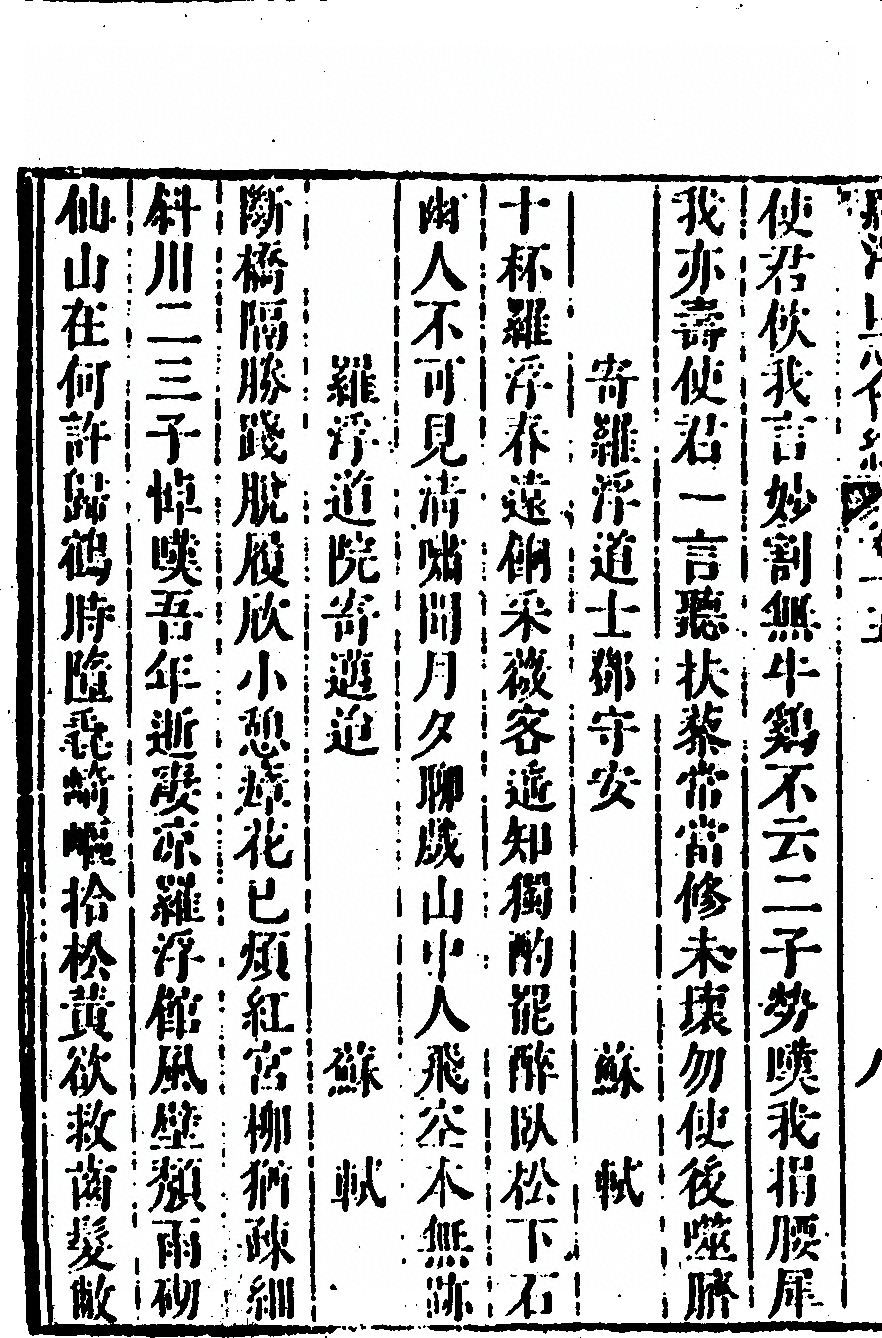 使君飲我言妙割無牛鷄不云二子勞嘆我捐腰犀
我亦壽使君一言聽扶藜常當修未壞勿使後噬臍
寄羅浮道士鄧守安 蘇軾
十杯羅浮春遠餉采薇客遥知獨酌罷醉臥松下石
幽人不可見清嘯聞月夕聊戲山中人飛空本無跡
羅浮道院寄邁迨 蘇軾
斷橋隔勝踐脫履欣小憩瘴花已煩紅官柳猶疎細
斜川二三子悼嘆吾年逝凄凉羅浮館風壁頹雨砌
仙山在何許歸鶴時隨毳崎嶇拾松黃欲救齒髮敝